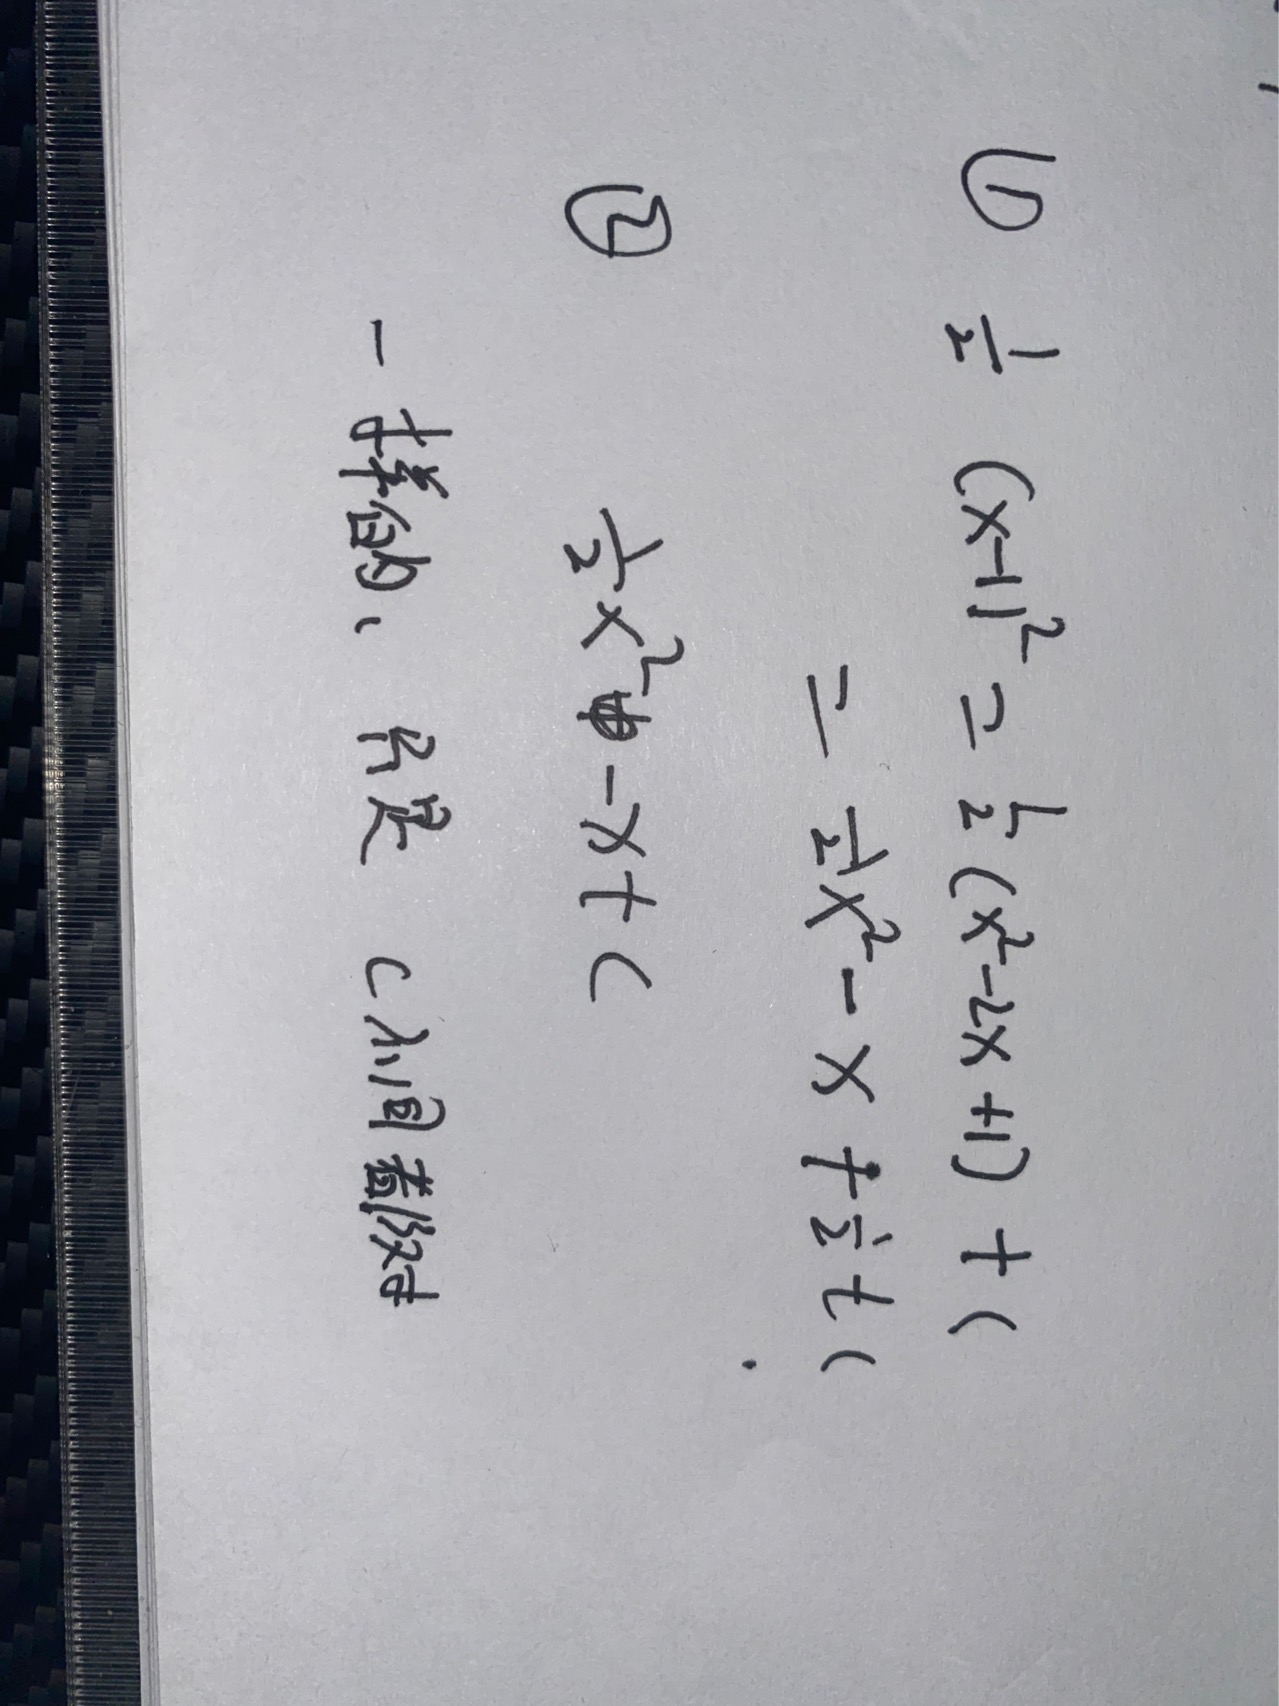 ① ½ (x-1)² = ½ (x²-2x+1) + C
= ½x² - x + ½ + C
② ½x² - x + C
一样的、只是 C不同 都对